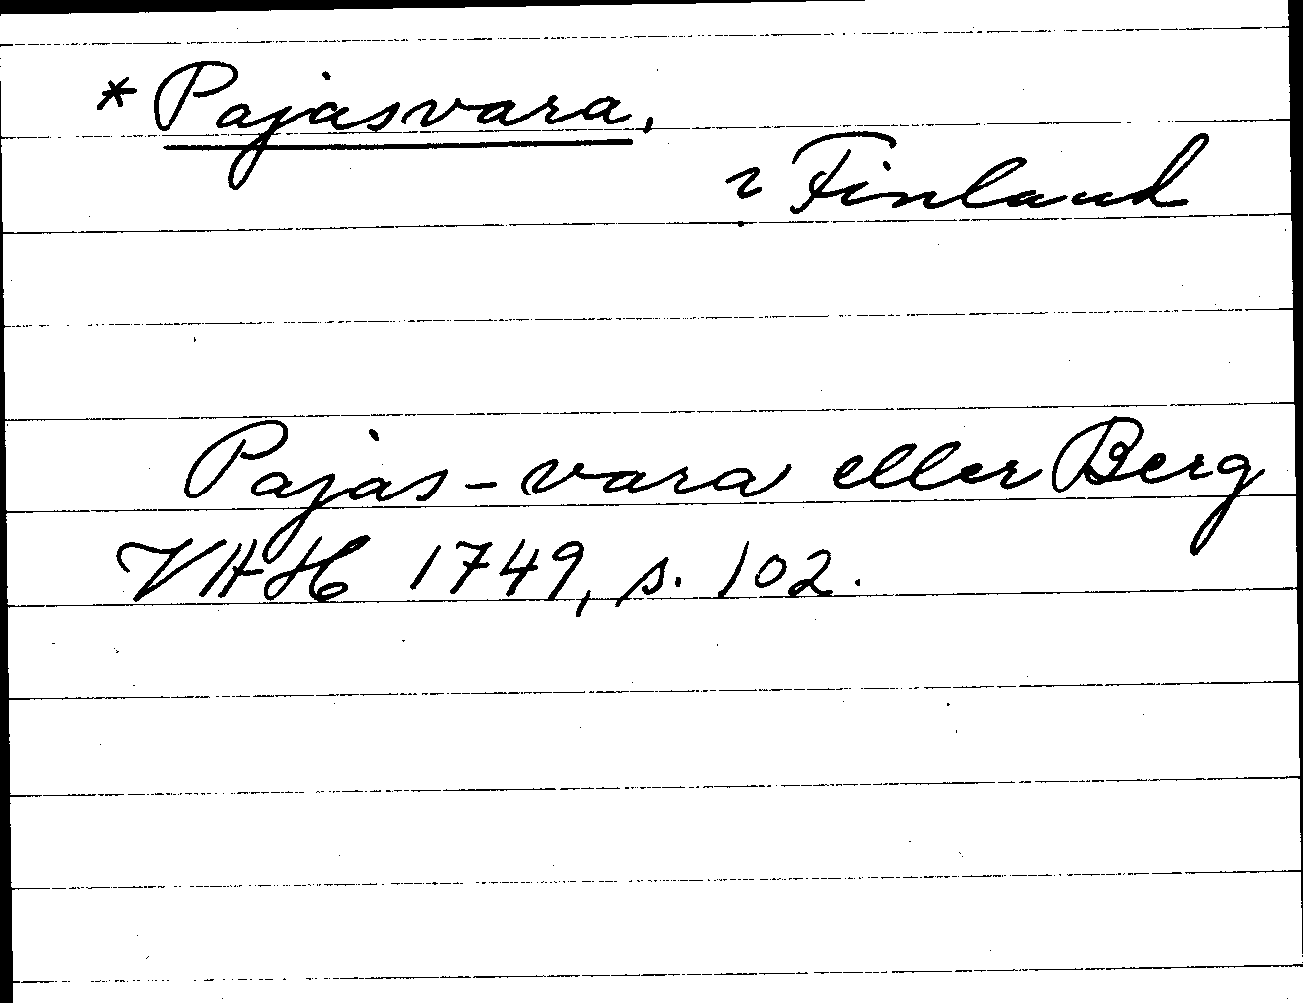 * Pajasvara,
? Finland
Pajas-vara eller Berg
VAH 1749, s. 102.